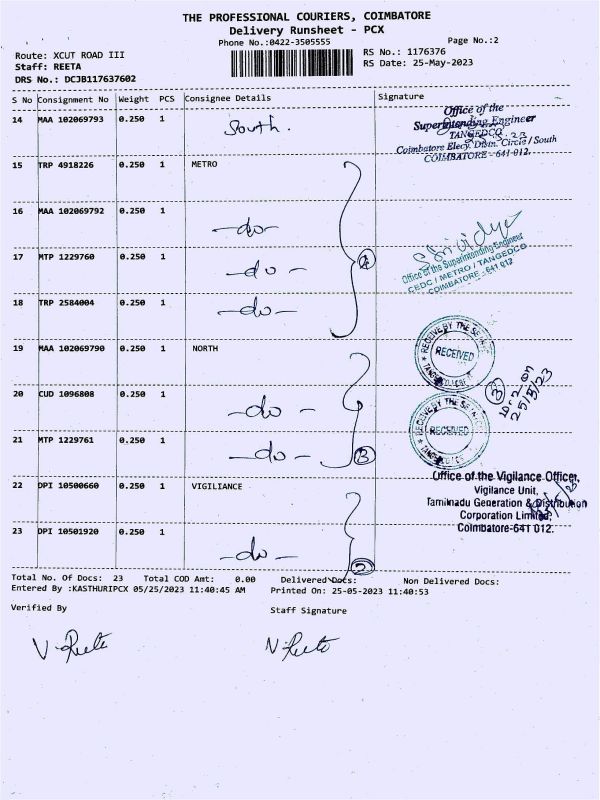 THE PROFESSIONAL COURIERS, COIMBATORE
Delivery Runsheet - PCX
Phone No.:0422-3505555
Page No.:2
Route: XCUT ROAD III
RS No.: 1176376
Staff: REETA
RS Date: 25-May-2023
DRS No.: DCJB117637602
S No Consignment No Weight PCS Consignee Details Signature
14 MAA 102069793 0.250 1 South.
Office of the
Superintending Engineer
TANGEDCO
Coimbatore Elecy. Distn. Circle / South
COIMBATORE - 641 012.
15 TRP 4918226 0.250 1 METRO
16 MAA 102069792 0.250 1 -do-
17 MTP 1229760 0.250 1 -do-
4
Srividya
Office of the Superintending Engineer
CEDC / METRO / TANGEDCO
COIMBATORE - 641 012
18 TRP 2584004 0.250 1 -do-
19 MAA 102069790 0.250 1 NORTH
RECEIVED
20 CUD 1096808 0.250 1 -do-
3
25/5/23
21 MTP 1229761 0.250 1 -do-
3
RECEIVED
22 DPI 10500660 0.250 1 VIGILIANCE
Office of the Vigilance Officer,
Vigilance Unit,
Tamilnadu Generation & Distribution
Corporation Limited,
Coimbatore-641 012.
23 DPI 10501920 0.250 1 -do-
2
Total No. Of Docs: 23 Total COD Amt: 0.00 Delivered Docs: Non Delivered Docs:
Entered By :KASTHURIPCX 05/25/2023 11:40:45 AM Printed On: 25-05-2023 11:40:53
Verified By
Staff Signature
V. Reeta
N. Reeta